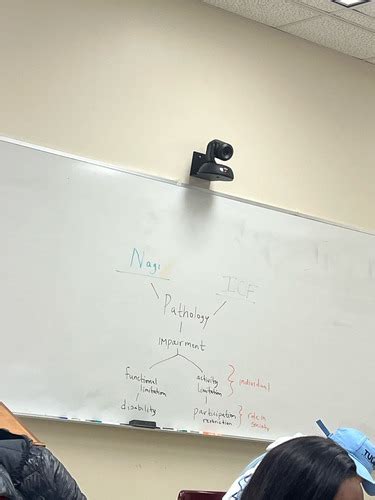 Nagi
ICF
Pathology
Impairment
functional limitation
activity limitation
individual
disability
participation restriction
role in society